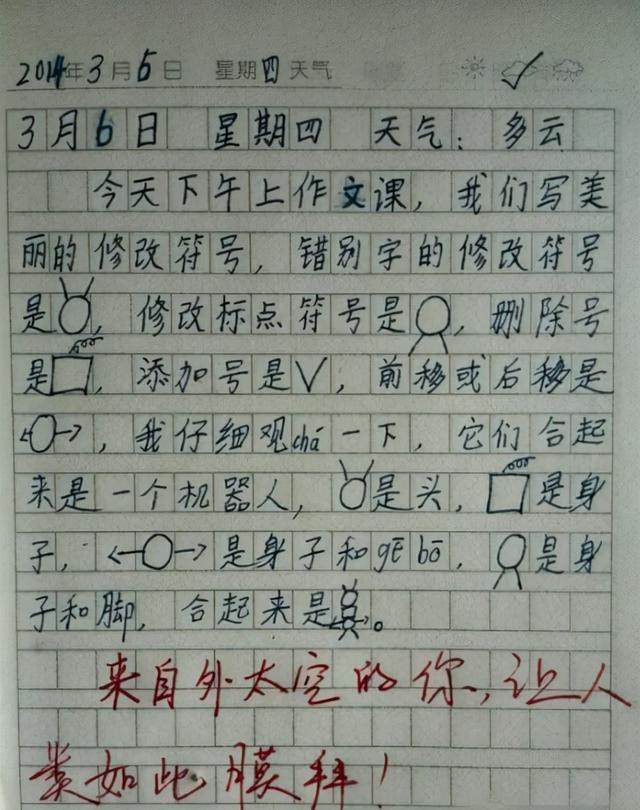 2014年3月6日 星期四天气
3月6日 星期四 天气：多云
今天下午上作文课，我们写美
丽的修改符号，错别字的修改符号
是，修改标点符号是，删除号
是，添加号是∨，前移或后移是
←○→，我仔细观chá一下，它们合起
来是一个机器人，是头，是身
子，←○→是身子和gē bō，是身
子和脚，合起来是。
来自外太空的你，让人
类如此膜拜！